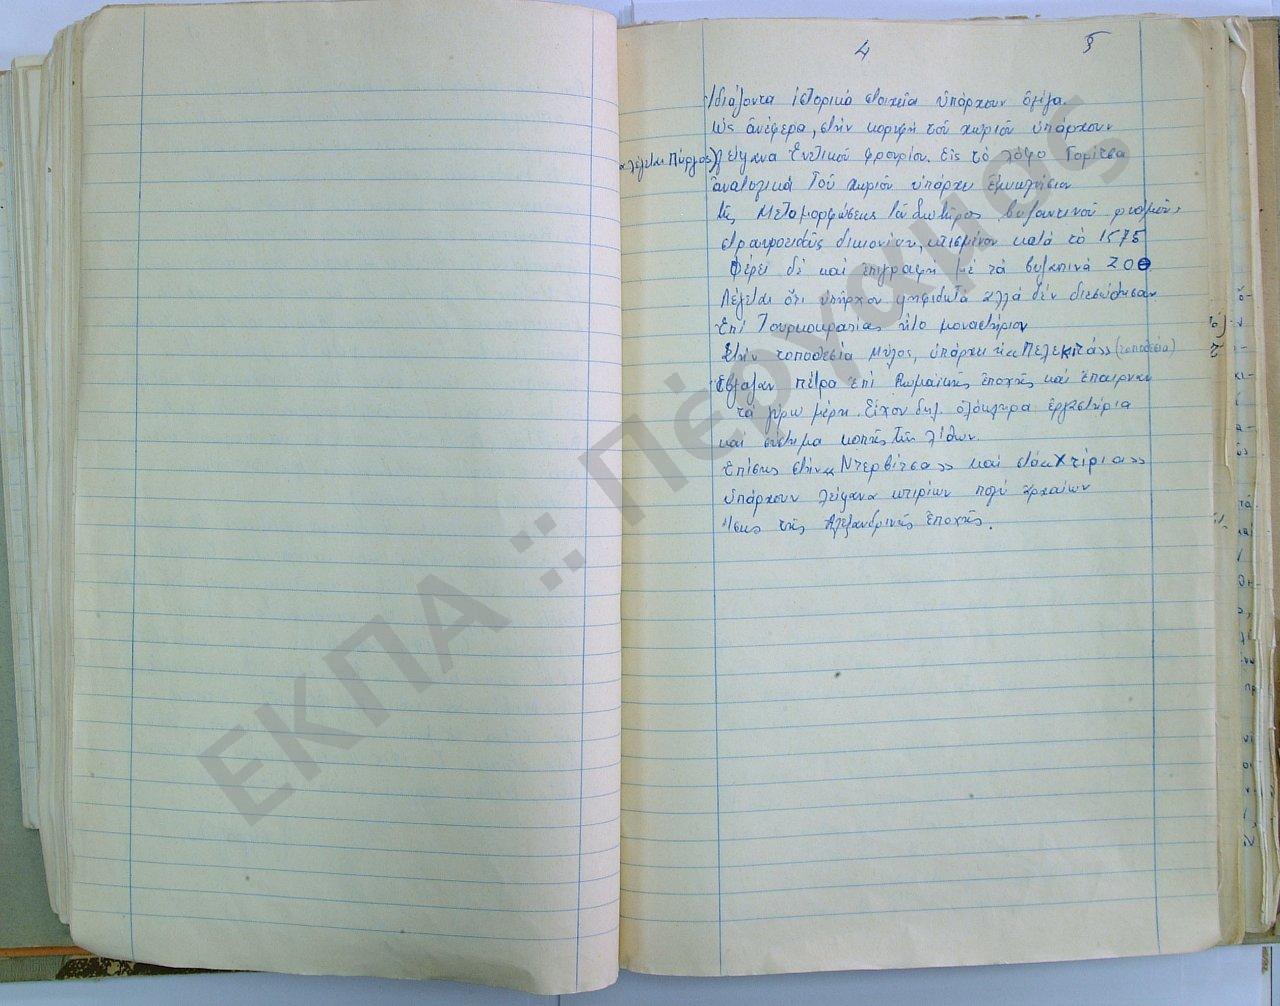 4
Ἰδιάζοντα ἱστορικά στοιχεῖα ὑπάρχουν ὀλίγα.
Ὡς ἀνέφερα, στήν κορυφή τοῦ χωριοῦ ὑπάρχουν
λέγεται Πύργος) λείψανα Ἑνετικοῦ φρουρίου. Εἰς τό λόφο Γορίτσα
ἀνατολικά τοῦ χωριοῦ ὑπάρχει ἐκκλησίον
τῆς Μεταμορφώσεως τοῦ Σωτῆρος βυζαντινοῦ ρυθμοῦ,
σταυροειδοῦς κτισμένον κατά τό 1575
Φέρει δέ καί ἐπιγραφή μέ τά βυζαντινά ΖΟΘ
Λέγεται ὅτι ὑπῆρχον ψηφιδωτά ἀλλά δέν διεσώθησαν
Ἐπί Τουρκοκρατίας ἦτο μοναστήριον
Στήν τοποθεσία Μύλος, ὑπάρχει ἡ «Πελεκητά» (τοποθεσία)
Ἔβγαζαν πέτρα ἐπί Ρωμαϊκῆς ἐποχῆς καί ἔπαιρναν
τά γύρω μέρη. Εἶχον δηλ. ὁλόκληρα ἐργαστήρια
καί σύστημα κοπῆς τῶν λίθων.
Ἐπίσης στήν «Ντερβίτσα» καί στά «Χτίρια»
ὑπάρχουν λείψανα κτιρίων πολύ ἀρχαίων
Ἴσως τῆς Ἀλεξανδρινῆς ἐποχῆς.
ΕΚΠΑ :: Πέργαμος